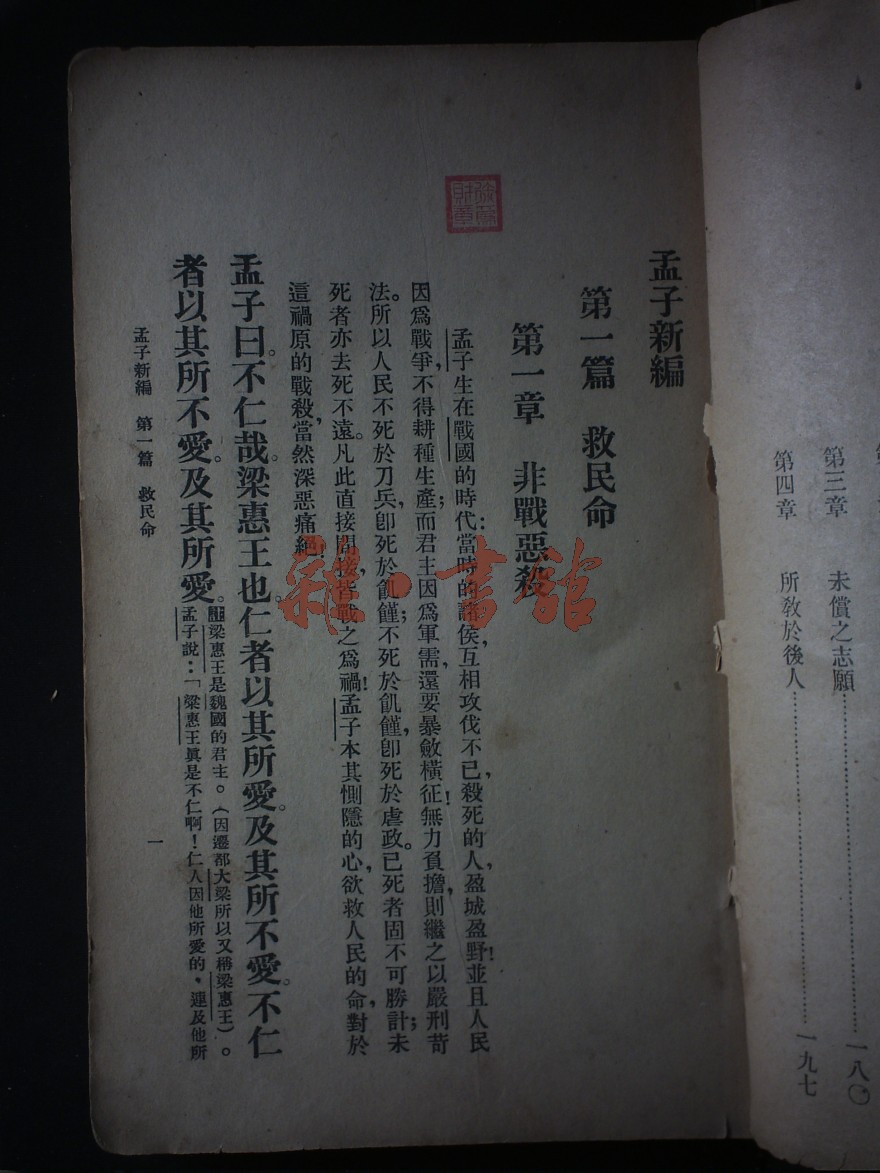 第三章　未償之志願……一八〇
第四章　所教於後人……一九七
孟子新編
第一篇　救民命
第一章　非戰惡殺
孟子生在戰國的時代：當時的諸侯，互相攻伐不已，殺死的人，盈城盈野！並且人民
因爲戰爭，不得耕種生產；而君主因爲軍需，還要暴斂橫征！無力負擔，則繼之以嚴刑苛
法。所以人民不死於刀兵，卽死於飢饉；不死於飢饉，卽死於虐政。已死者固不可勝計；未
死者亦去死不遠。凡此直接間接，皆戰之爲禍！孟子本其惻隱的心，欲救人民的命，對於
這禍原的戰殺，當然深惡痛絕！
孟子曰。不仁哉。梁惠王也。仁者以其所愛。及其所不愛。不仁
者以其所不愛。及其所愛。
註梁惠王是魏國的君主。（因遷都大梁所以又稱梁惠王）。
孟子說：「梁惠王眞是不仁啊！仁人因他所愛的，連及他所
孟子新編　第一篇　救民命
一
雜·書館